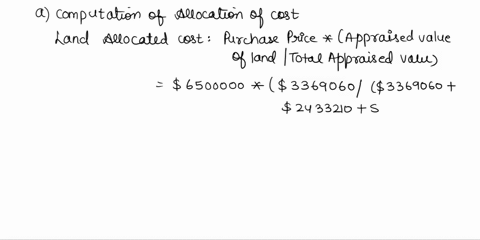 a) Computation of Allocation of cost
Land Allocated cost: Purchase Price * (Appraised value
of land / Total Appraised value)
= $6500000 * ($3369060/ ($3369060 +
$2433210 + S